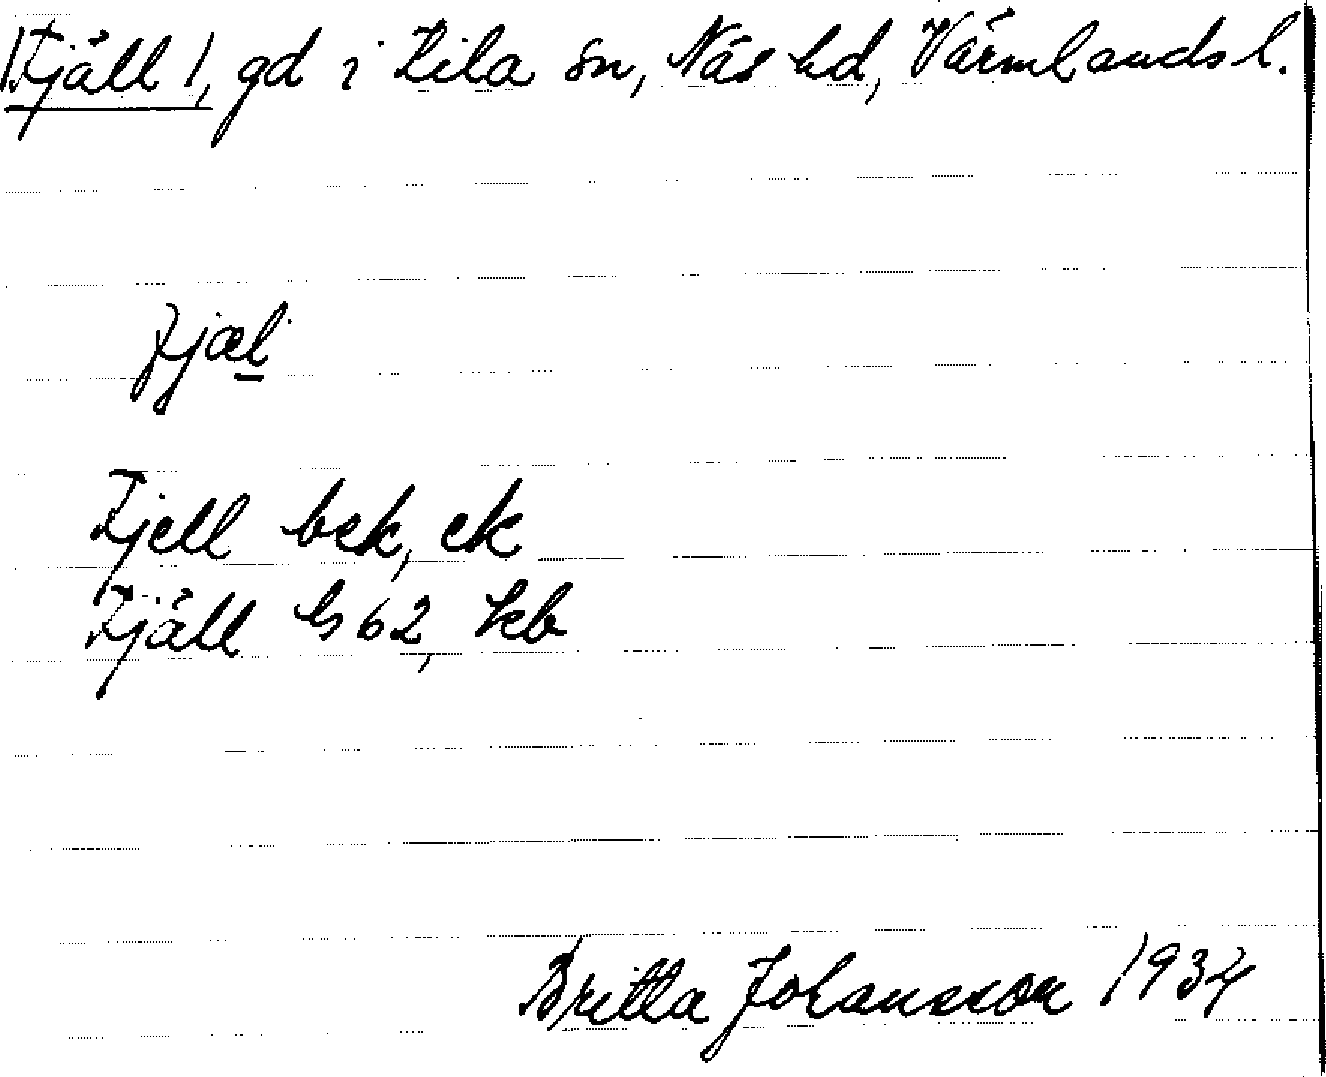 Fjäll 1, gd i Kila sn, Näs hd, Värmlands l.
fjæl
Fjell bek, ek
Fjäll Gs 62, kb
Britta Johansson 1934